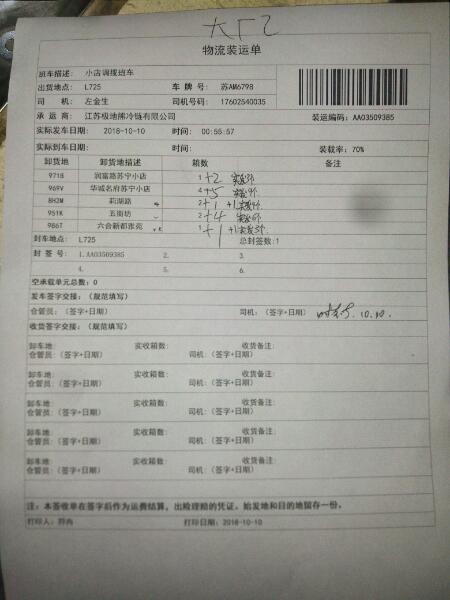 大厂乙
物流装运单
班车描述: 小店调拨班车
出货地点: L725 车 牌 号: 苏AM6798
司 机: 左金生 司机号码: 17602540035
承 运 商: 江苏极地熊冷链有限公司 装运编码: AA03509385
实际发车日期: 2018-10-10 时间: 00:55:57
实际到车日期: 时间: 装载率: 70%
卸货地 卸货地描述 箱数 备注
971B 润富路苏宁小店 1 +2
969V 华诚名府苏宁小店 4 +5
8H2M 莉湖路 2 +1 +1
951K 五街坊 2 +4
986T 六合新都雅苑 1 +1 +1
封车地点: L725 总封签数:1
封 签 号: 1.AA03509385 2. 3.
4. 5. 6.
空承载单元总数: 0
发车签字交接: (规范填写)
仓管员: (签字+日期) 司机: (签字+日期) 10.10.
收货签字交接: (规范填写)
卸车地: 实收箱数: 收货备注:
仓管员: (签字+日期) 司机: (签字+日期)
卸车地: 实收箱数: 收货备注:
仓管员: (签字+日期) 司机: (签字+日期)
卸车地: 实收箱数: 收货备注:
仓管员: (签字+日期) 司机: (签字+日期)
卸车地: 实收箱数: 收货备注:
仓管员: (签字+日期) 司机: (签字+日期)
卸车地: 实收箱数: 收货备注:
仓管员: (签字+日期) 司机: (签字+日期)
注: 本签收单在签字后作为运费结算, 出险理赔的凭证, 始发地和目的地留存一份。
打印人: 打印日期: 2018-10-10